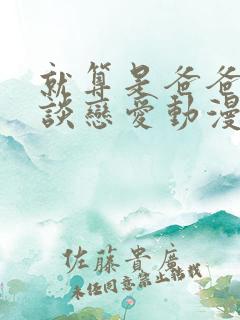 就算是爸爸
談戀愛動漫
佐藤貴廣
未任同意禁止轉載